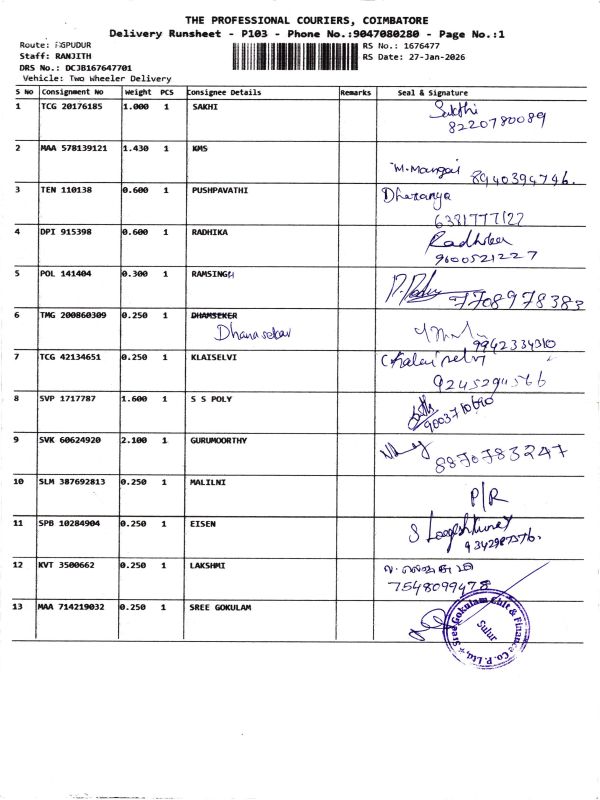 THE PROFESSIONAL COURIERS, COIMBATORE
Delivery Runsheet - P103 - Phone No.:9047080280 - Page No.:1
Route: PGPUDUR
RS No.: 1676477
Staff: RANJITH
RS Date: 27-Jan-2026
DRS No.: DCJB167647701
Vehicle: Two Wheeler Delivery
S No Consignment No Weight PCS Consignee Details Remarks Seal & Signature
1 TCG 20176185 1.000 1 SAKHI Sakthi
8220780089
2 MAA 578139121 1.430 1 KMS
M. Mangai 8940394746.
3 TEN 110138 0.600 1 PUSHPAVATHI Dharanya
6381777122
4 DPI 915398 0.600 1 RADHIKA Radhika
9600521227
5 POL 141404 0.300 1 RAMSINGH
7708978383
6 TMG 200860309 0.250 1 DHAMSEKER
Dhanasekar
9942334310
7 TCG 42134651 0.250 1 KLAISELVI Kalaiselvi
9245294566
8 SVP 1717787 1.600 1 S S POLY
9003710690
9 SVK 60624920 2.100 1 GURUMOORTHY
8870783247
10 SLM 387692813 0.250 1 MALILNI
P/R
11 SPB 10284904 0.250 1 EISEN S
12 KVT 3500662 0.250 1 LAKSHMI
7548099478
13 MAA 714219032 0.250 1 SREE GOKULAM
Sree Gokulam Chit & Finance Co. P. Ltd.,
Sulur